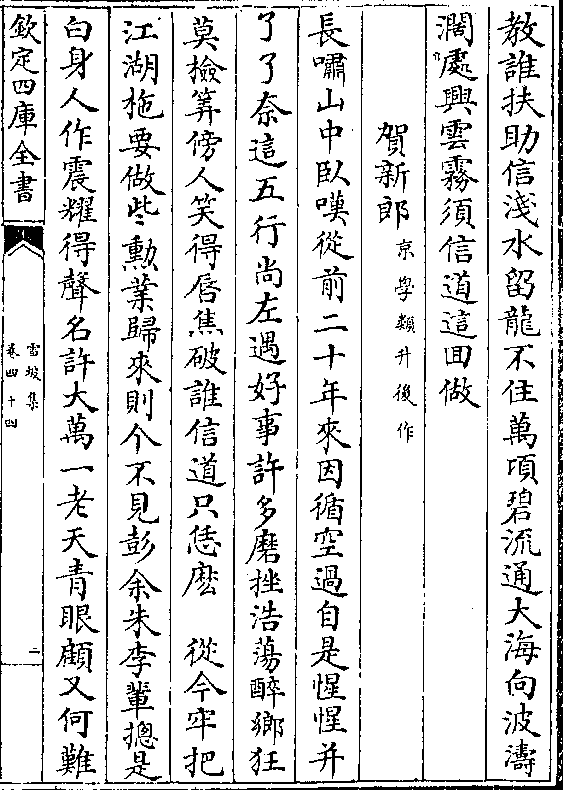 教誰扶助信淺水留龍不住萬項碧流通大海向波濤
濶處興雲霧須信道這回做
賀新郎京學類升後作
長嘯山中臥嘆從前二十年來因循空過自是惺惺并
了了奈這五行尚左遇好事許多磨挫浩蕩醉鄉狂
莫檢筭傍人笑得唇焦破誰信道只恁麽　從今牢把
江湖柂要做些勲業歸來則个不見彭余朱李輩摠是
白身人作震耀得聲名許大萬一老天青眼顧又何難
欽定四庫全書
雪坡集
卷四十四
二